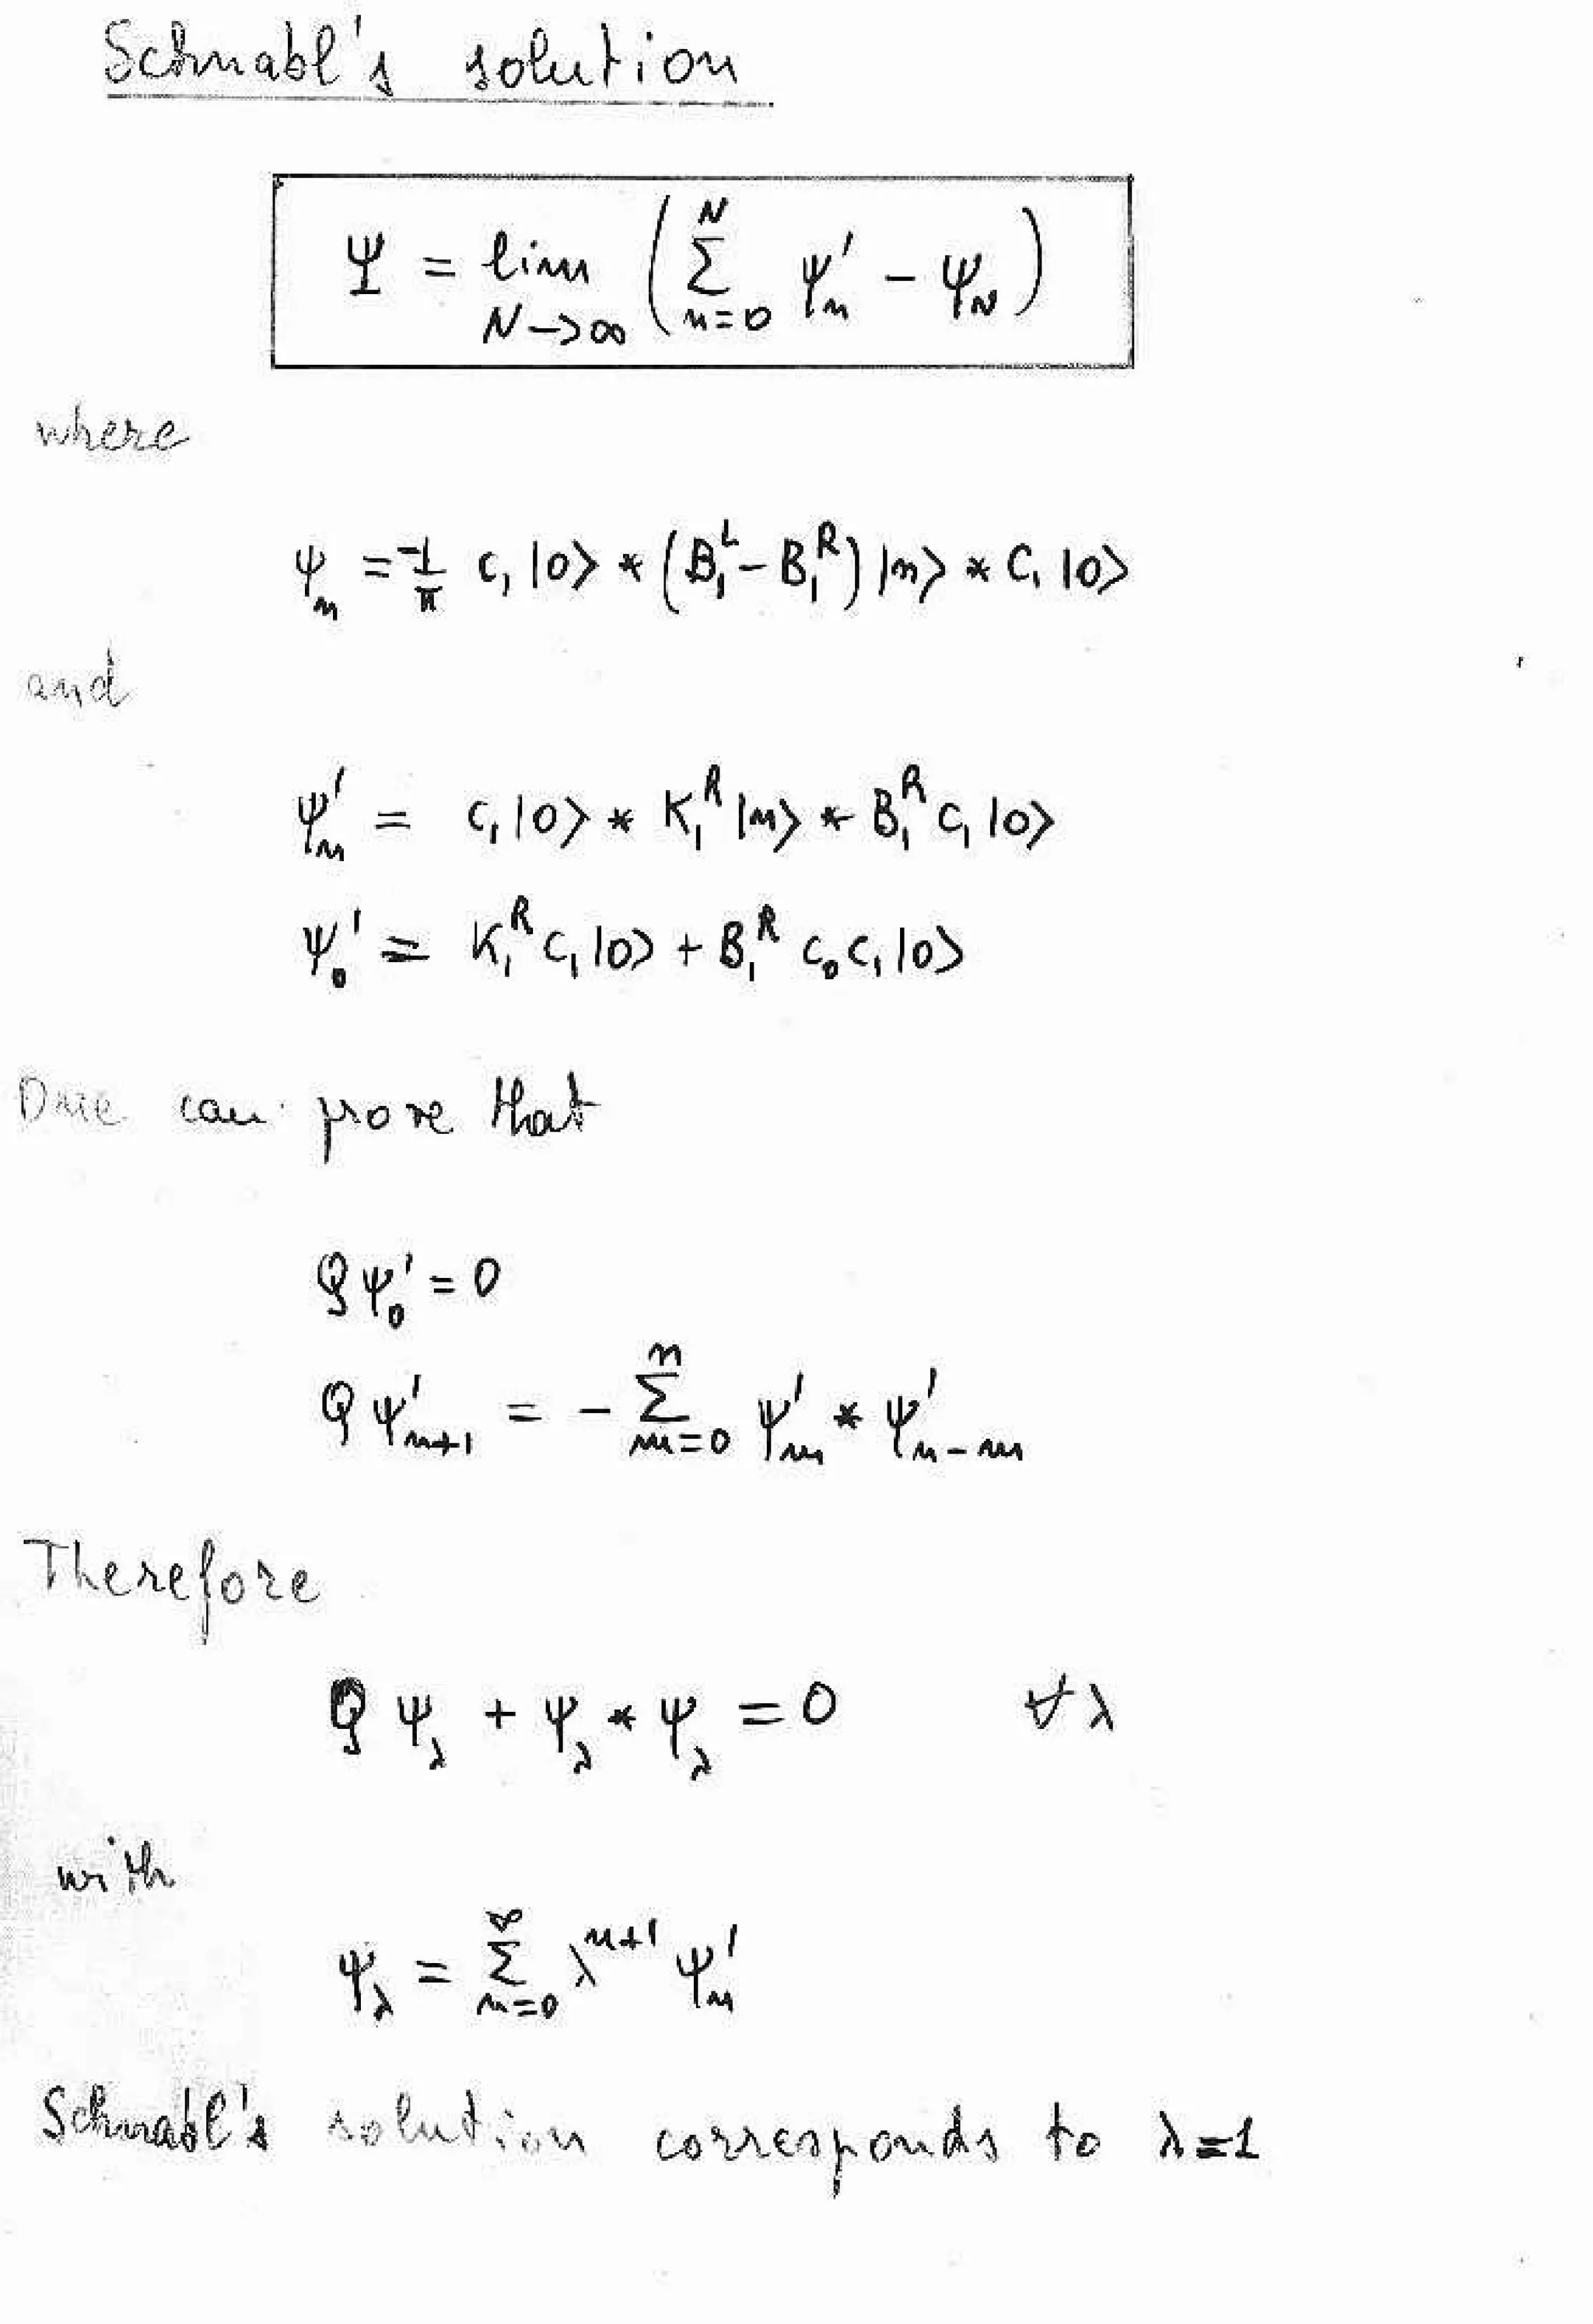 Schnabl's solution
Ψ = lim_{N→∞} ( ∑_{n=0}^{N} ψ'_n − ψ_N )
where
ψ_n = -1/π c_1 |0> * (B_1^L − B_1^R) |n> * C_1 |0>
and
ψ'_n = c_1 |0> * K_1^R |n> * B_1^R c_1 |0>
ψ'_0 = K_1^R c_1 |0> + B_1^R c_0 c_1 |0>
One can prove that
Q ψ'_0 = 0
Q ψ'_{n+1} = − ∑_{m=0}^{n} ψ'_m * ψ'_{n-m}
Therefore
Q ψ_λ + ψ_λ * ψ_λ = 0 ∀ λ
with
ψ_λ = ∑_{n=0}^{∞} λ^{n+1} ψ'_n
Schnabl's solution corresponds to λ=1